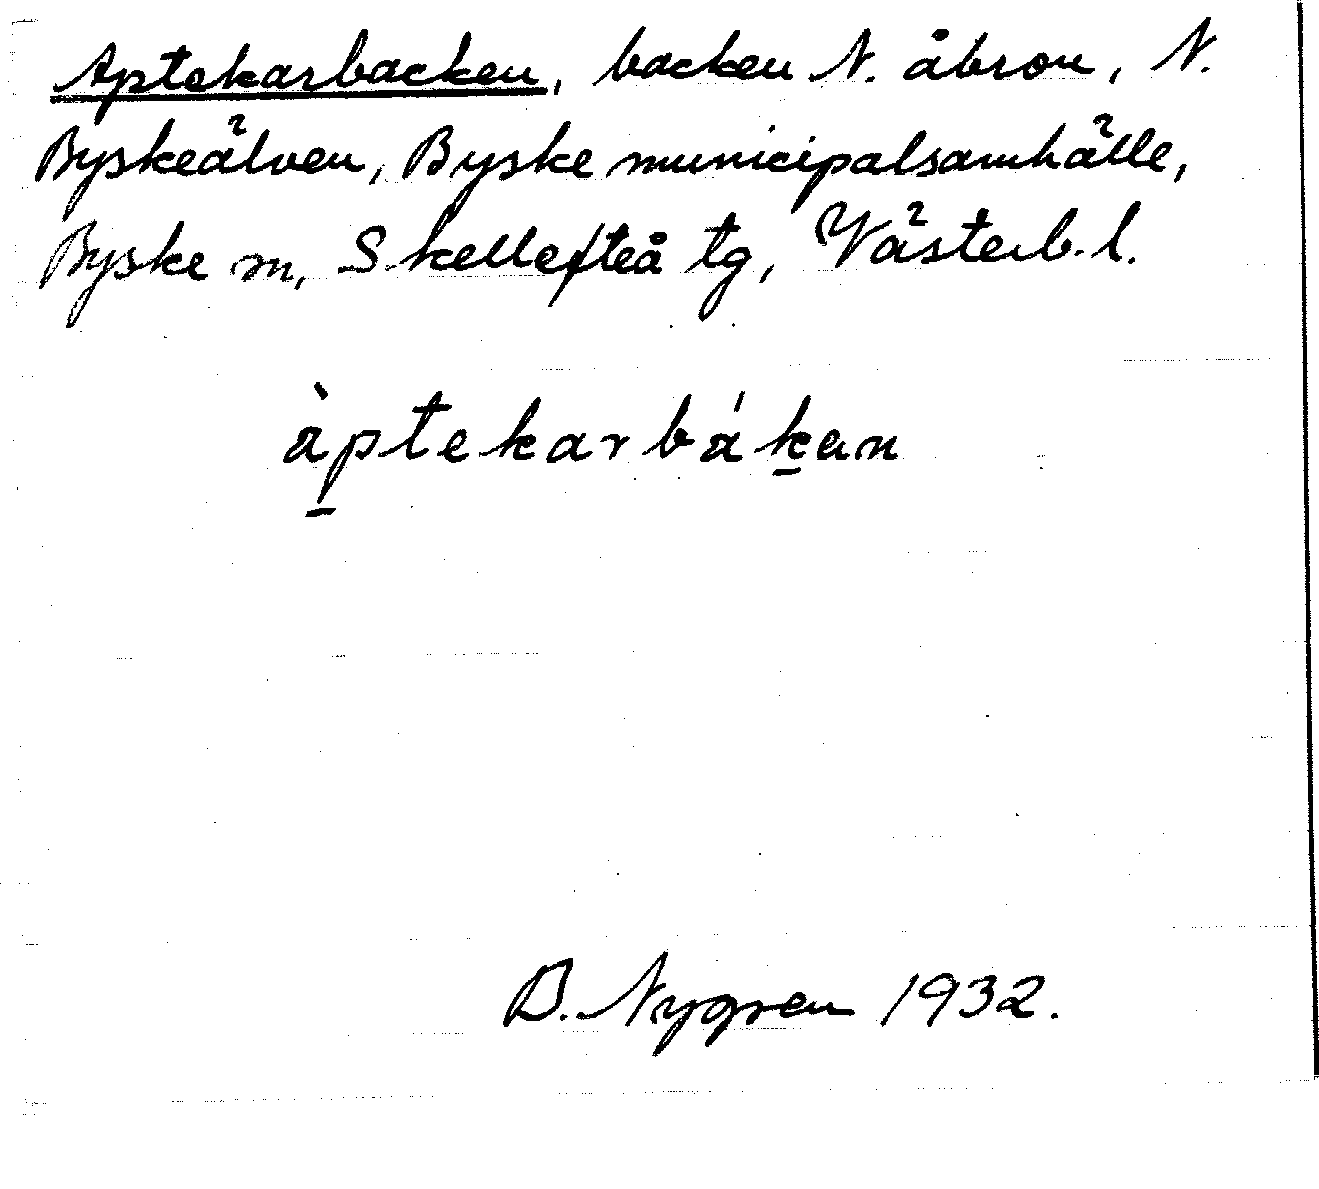 Aptekarbacken, backen N. åbron, N.
Byskeälven, Byske municipalsamhälle,
Byske sn, Skellefteå tg, Västerb. l.
àp̲tekarbák̲an
B. Nygren 1932.